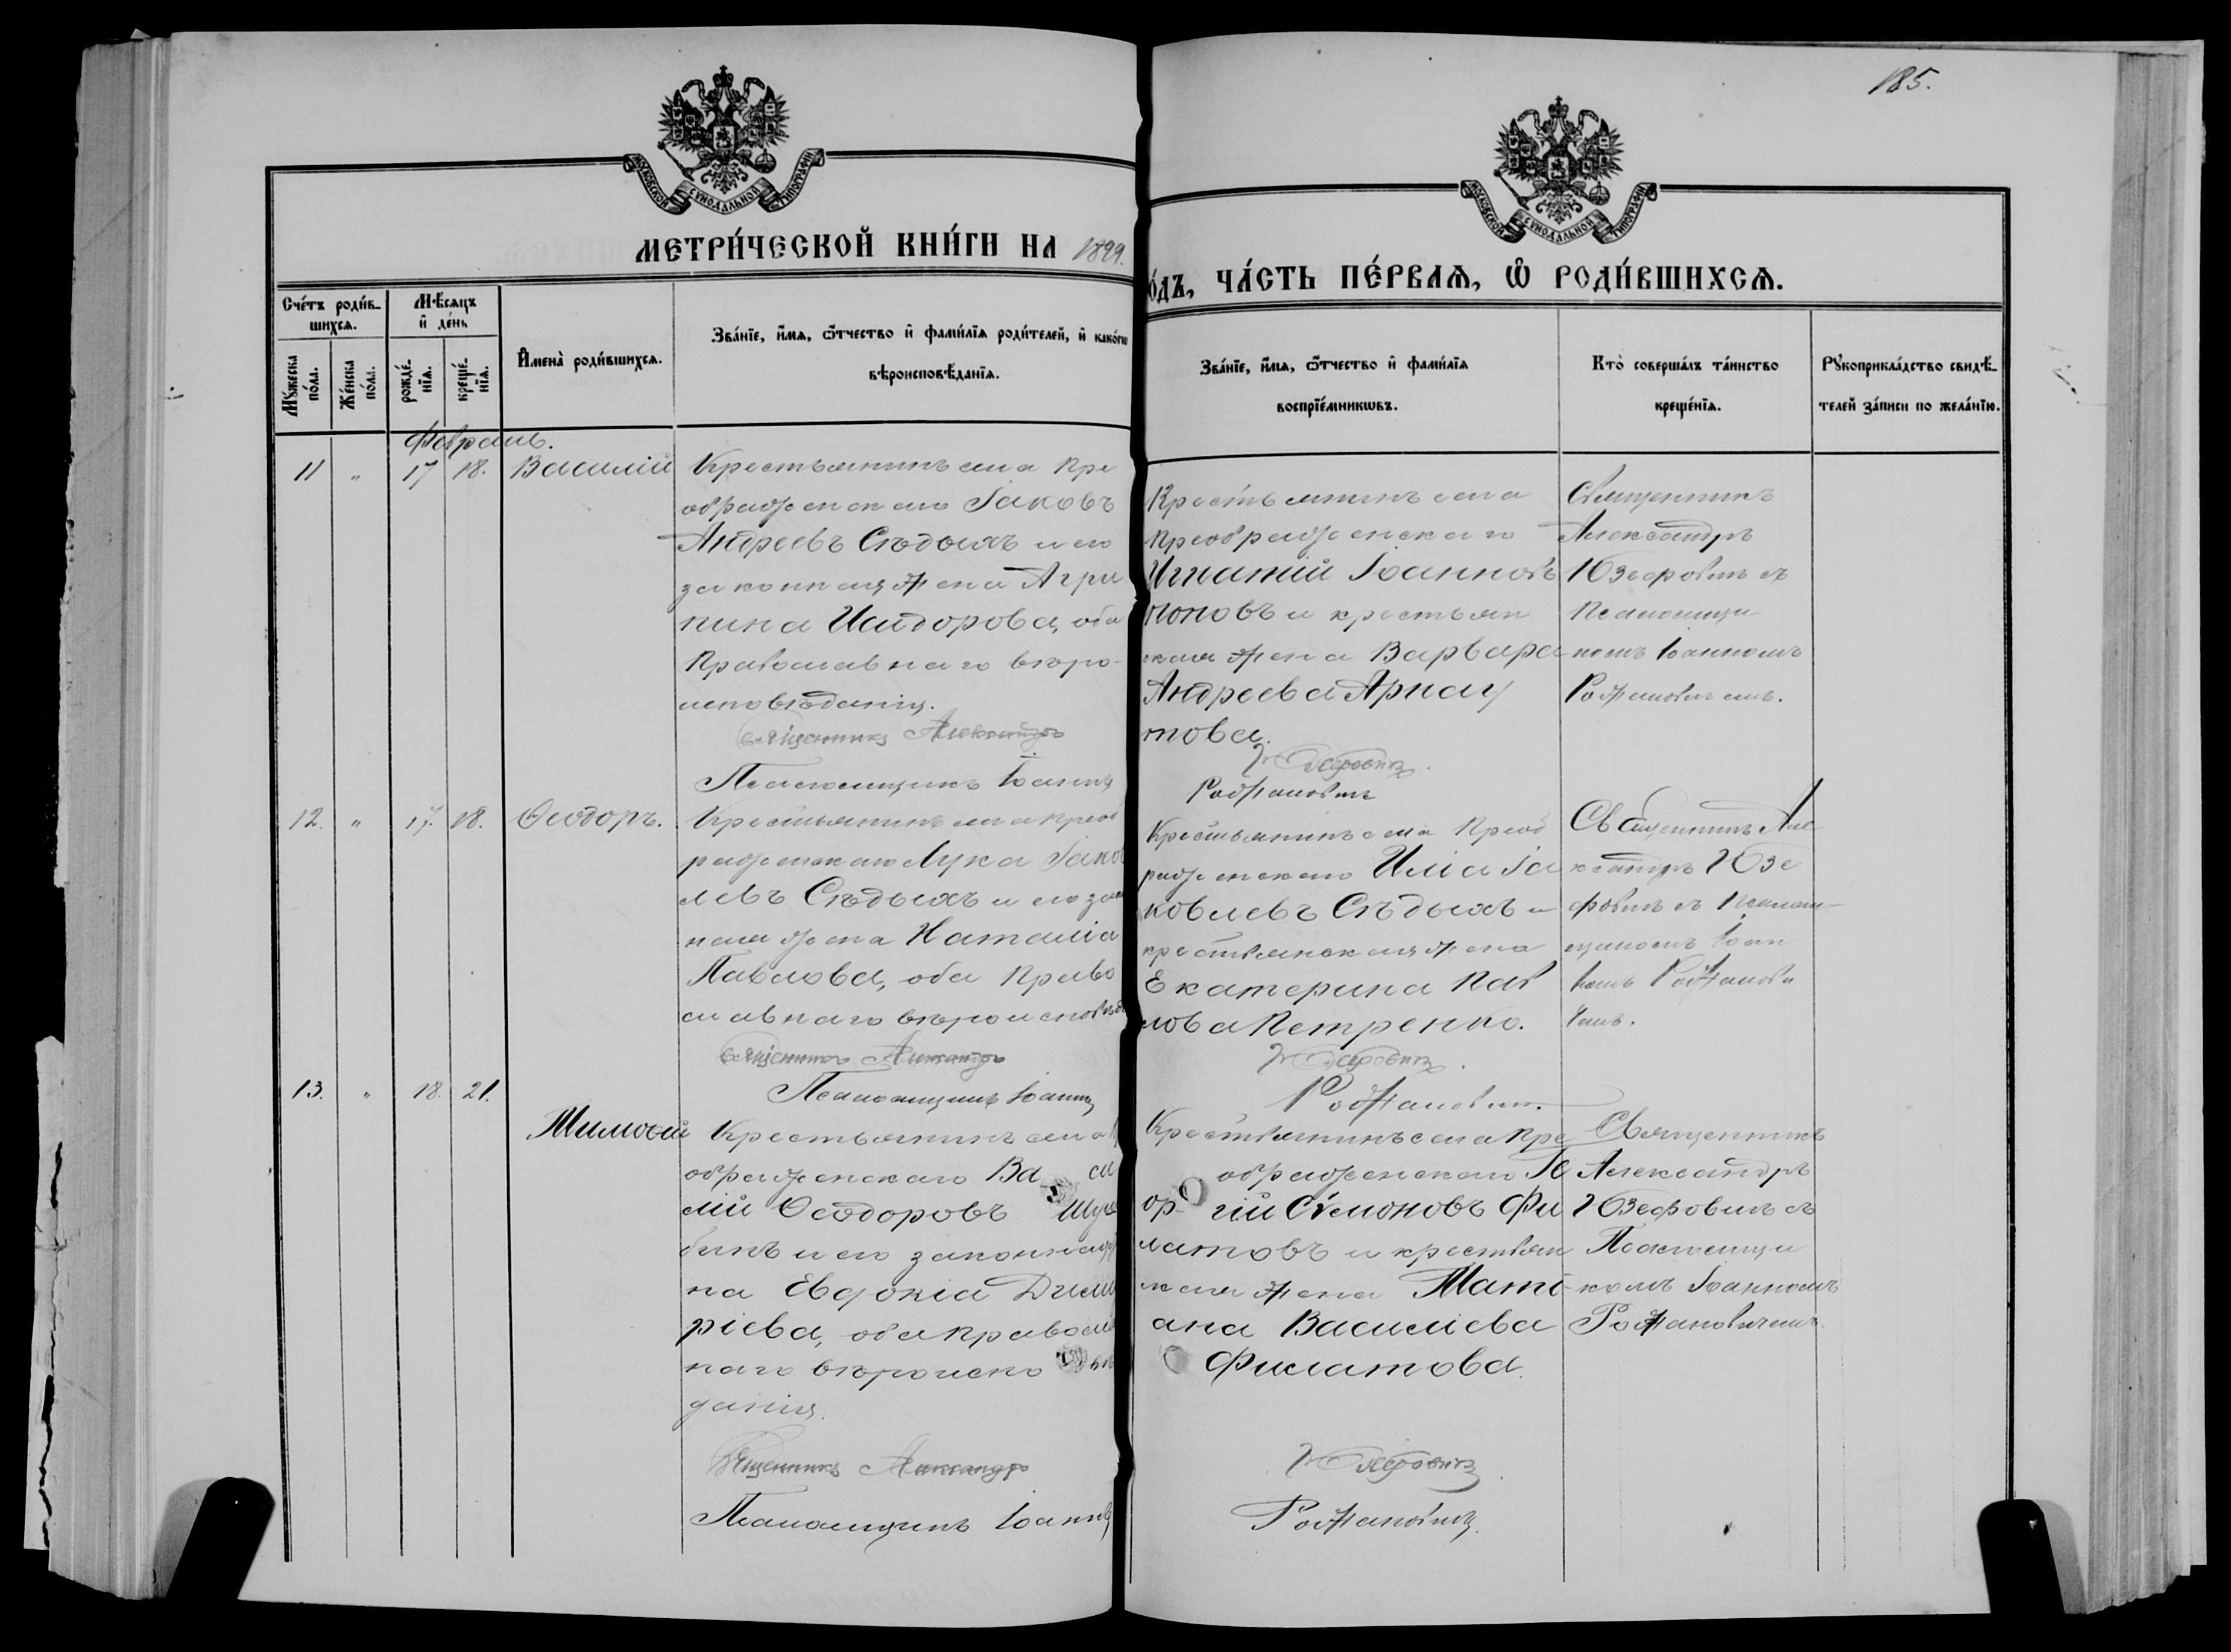 185.
МОСКОВСКОЙ СѴНОДАЛЬНОЙ ТИПОГРАФІИ
МОСКОВСКОЙ СѴНОДАЛЬНОЙ ТИПОГРАФІИ
МЕТРИ́ЧЕСКОЙ КНИ́ГИ НА 1899.
О́ДЪ, ЧА́СТЬ ПЕ́РВАѦ, Ѡ҆ РОДИ́ВШИХСѦ.
Сче́тъ роди́в-
шихсѧ.
Мꙋ́жеска
по́ла.
Же́нска
по́ла.
Мѣ́сѧцъ
и҆ де́нь
рожде́-
нїѧ.
креще́-
нїѧ.
И҆мена̀ роди́вшихсѧ.
Зва́нїе, и҆́мѧ, ѻ҆́тчество и҆ фами́лїѧ роди́телей, и҆ како́гѡ
вѣроисповѣ́данїѧ.
Зва́нїе, и҆́мѧ, ѻ҆́тчество и҆ фами́лїѧ
воспрїе́мникѡвъ.
Кто̀ соверша́лъ та́инство
креще́нїѧ.
Рꙋкоприкла́дство свидѣ́-
телей за́писи по жела́нїю.
Февраль.
11 " 17 18. Василій
Крестьянинъ села Пре
ображенскаго Іаковъ
Андреевъ Сѣдыхъ и его
законная жена Агри
пина Исидорова, оба
Православнаго вѣро-
исповѣданія.
Священникъ Александръ
Псаломщикъ Іоаннъ
Крестьянинъ села
Преображенскаго
Игнатій Іоанновъ
поновъ и крестьян
ская жена Варвара
Андреева Арнау
това.
Юзефовичъ.
Рожановичъ
Священникъ
Александръ
Юзефовичъ съ
Псаломщи
комъ Іоанномъ
Рожановичемъ.
12. " 17. 18. Ѳеодоръ.
Крестьянинъ села Преоб
раженскаго Лука Іаков
левъ Сѣдыхъ и его зако
нная жена Наталія
Павлова, оба Право
славнаго вѣроисповѣда
Священникъ Александръ
Псаломщикъ Іоаннъ
Крестьянинъ села Преоб
раженскаго Илія Іа
ковлевъ Сѣдыхъ и
крестьянская жена
Екатерина Пав
лова Петренко.
Юзефовичъ.
Рожановичъ.
Священникъ Але
ксандръ Юзе
фовичъ съ Псалом-
щикомъ Іоан
номъ Рожанови
чемъ.
13. " 18. 21.
Тимофей
Крестьянинъ села П
ображенскаго Ва си
лій Ѳеодоровъ Шул
бинъ и его законная
на Евдокія Дими
ріева, оба православ
наго вѣроиспо вѣ
данія.
Священникъ Александръ
Псаломщикъ Іоаннъ
Крестьянинъ села Пре
ображенскаго Ге
ор гій Сѵмоновъ Фи
латовъ и крестьян
ская жена Тати-
ана Василіева
Филатова.
Юзефовичъ.
Рожановичъ.
Священникъ
Александръ
Юзефовичъ съ
Псаломщи
комъ Іоанномъ
Рожановичемъ.